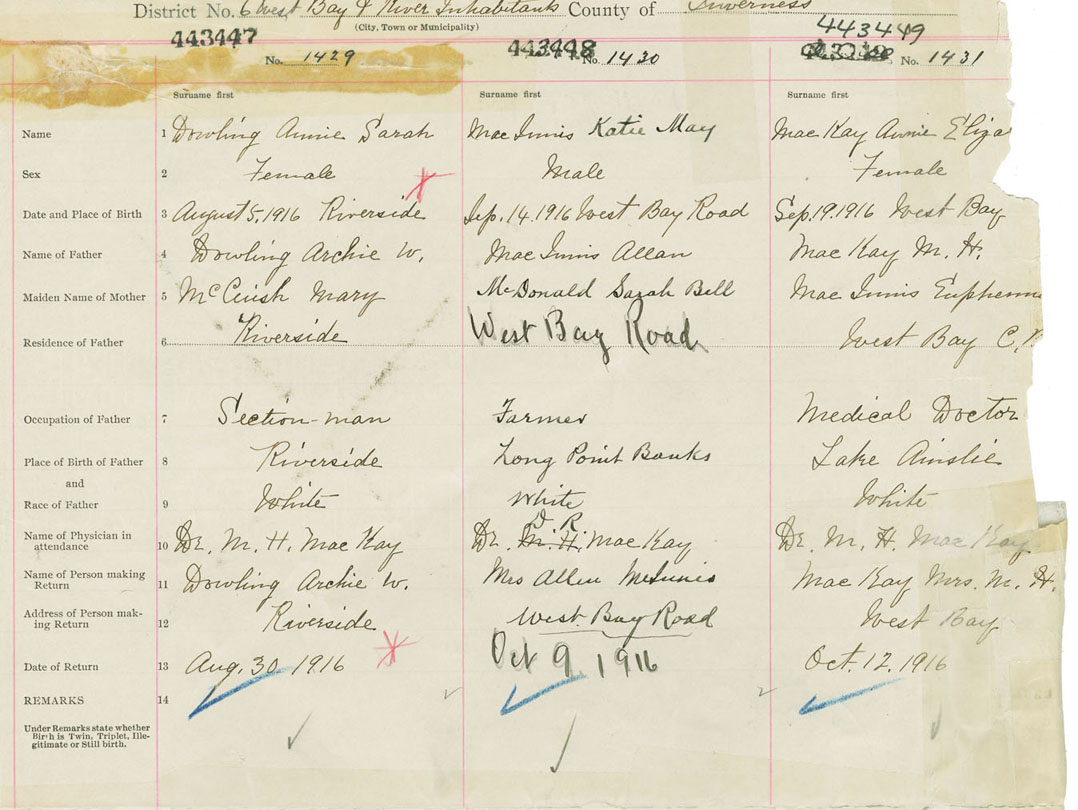 District No. 6 West Bay & River Inhabitants County of Inverness
(City, Town or Municipality)
443447 443448 443449
No. 1429 No. 1430 No. 1431
Surname first Surname first Surname first
Name 1 Dowling Annie Sarah Mac Innis Katie May Mac Kay Annie Eliza
Sex 2 Female Male Female
Date and Place of Birth 3 August 5, 1916 Riverside Sep. 14. 1916 West Bay Road Sep. 19. 1916 West Bay
Name of Father 4 Dowling Archie W. Mac Innis Allan Mac Kay M. H.
Maiden Name of Mother 5 Mary McDonald Sarah Bell Mac Innis Euphem
Residence of Father 6 Riverside West Bay Road West Bay C.
Occupation of Father 7 Section-man Farmer Medical Doctor
Place of Birth of Father 8 Riverside Long Point Banks Lake Ainslie
and
Race of Father 9 White White White
Name of Physician in D. R.
attendance 10 Dr. M. H. Mac Kay Dr. M. H. Mac Kay Dr. M. H. Mac Kay
Name of Person making
Return 11 Dowling Archie W. Mrs Allen McInnis Mac Kay Mrs. M. H.
Address of Person mak-
ing Return 12 Riverside West Bay Road West Bay
Date of Return 13 Aug. 30 1916 Oct 9. 1916 Oct. 12. 1916
REMARKS 14
Under Remarks state whether
Birth is Twin, Triplet, Ille-
gitimate or Still birth.